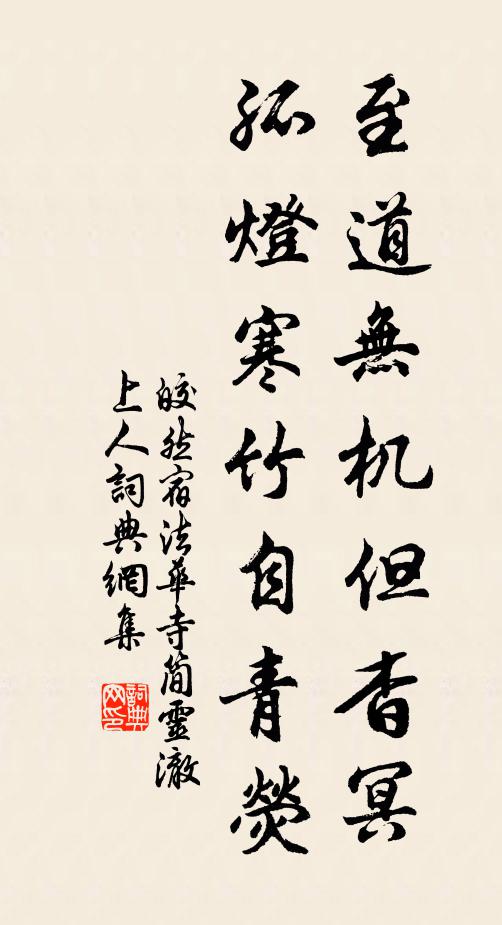 至道無机但杳冥
孤燈寒竹自青熒
皎然宿法華寺簡靈澈
上人詞典網集
詞典
网印